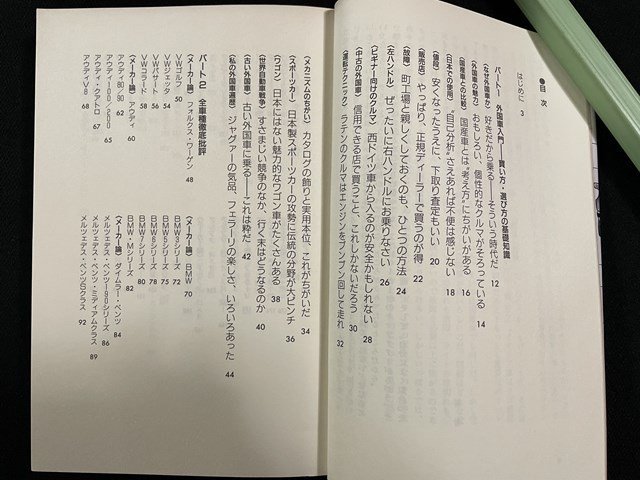 ●目 次
はじめに 3
パート1 外国車入門——買い方・選び方の基礎知識
〈なぜ外国車か〉 好きだから乗る——そういう時代だ 12
〈外国車の魅力〉 おもしろい、個性的なクルマがそろっている 14
〈国産車との比較〉 国産車とは“考え方”にちがいがある 16
〈日本での使用〉 “自己分析”さえあれば不便は感じない 18
〈値段〉 安くなったうえに、下取り査定もいい 20
〈販売店〉 やっぱり、正規ディーラーで買うのが得 22
〈故障〉 町工場と親しくしておくのも、ひとつの方法 24
〈左ハンドル〉 ぜったいに右ハンドルにお乗りなさい 26
〈ビギナー向けのクルマ〉 西ドイツ車から入るのが安全かもしれない 28
〈中古の外国車〉 信用できる店で買うこと、これしかないだろう 30
〈運転テクニック〉 ラテンのクルマはエンジンをブンブン回して走れ 32
〈メカニズムのちがい〉 カタログの飾りと実用本位、これがちがいだ 34
〈スポーツカー〉 日本製スポーツカーの攻勢に伝統の分野が大ピンチ 36
〈ワゴン〉 日本にはない魅力的なワゴン車がたくさんある 38
〈世界自動車戦争〉 すさまじい競争のなか、行く末はどうなるのか 40
〈古い外国車〉 古い外国車に乗る——これは粋だ 42
〈私の外国車遍歴〉 ジャグァーの気品、フェラーリの楽しさ、いろいろあった 44
パート2 全車種徹底批評
〈メーカー論〉 フォルクス・ワーゲン 48
VWゴルフ 50
VWジェッタ 54
VWパサート 56
VWコラード 58
〈メーカー論〉 アウディ 60
アウディ80/90 62
アウディ100/200 65
アウディ・クアトロ 67
アウディV8 68
〈メーカー論〉 BMW 70
BMW3シリーズ 72
BMW5シリーズ 75
BMW6シリーズ 78
BMW7シリーズ 80
BMW・Mシリーズ 82
〈メーカー論〉 ダイムラー・ベンツ 84
メルツェデス・ベンツ190シリーズ 86
メルツェデス・ベンツ・ミディアムクラス 89
メルツェデス・ベンツSクラス 92